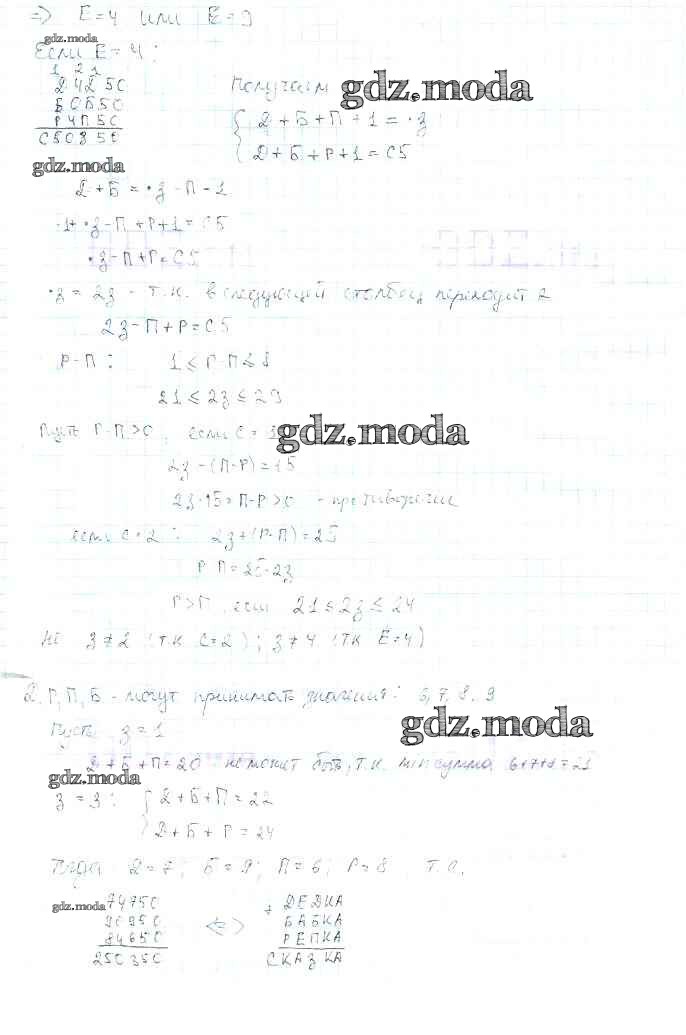 => Е=4 или Е=9
Если Е=4:
1 21
Д4Д50
Б0Б50
Р4П50
С50З50
Получаем
gdz.moda
Д+Б+П+1=·З
Д+Б+Р+1=С5
gdz.moda
Д+Б=·З-П-1
-1+·З-П+Р+1=С5
·З-П+Р=С5
·З=2З - т.к. в следующий столбец переходит 2
2З-П+Р=С5
Р-П:
21≤2З≤29
Пусть Р-П>0, если С=1
gdz.moda
2З-(П-Р)=15
2З-15=П-Р>0 - противоречие
если С=2: 2З+(Р-П)=25
Р-П=25-2З
Р>П, если 21≤2З≤24
Но З≠2 (т.к. С=2); З≠4 (т.к. Е=4)
Д, Р, П, Б - могут принимать значения: 6,7,8,9
Пусть З=1
gdz.moda
Д+Б+П=20 не может быть, т.к. min сумма 6+7+8=21
gdz.moda
З=3: Д+Б+П=22
Д+Б+Р=24
Тогда Д=7; Б=9; П=6; Р=8, т.о.
gdz.moda
74750
90950
84650
250350
<=>
+ ДЕДКА
БАБКА
РЕПКА
СКАЗКА